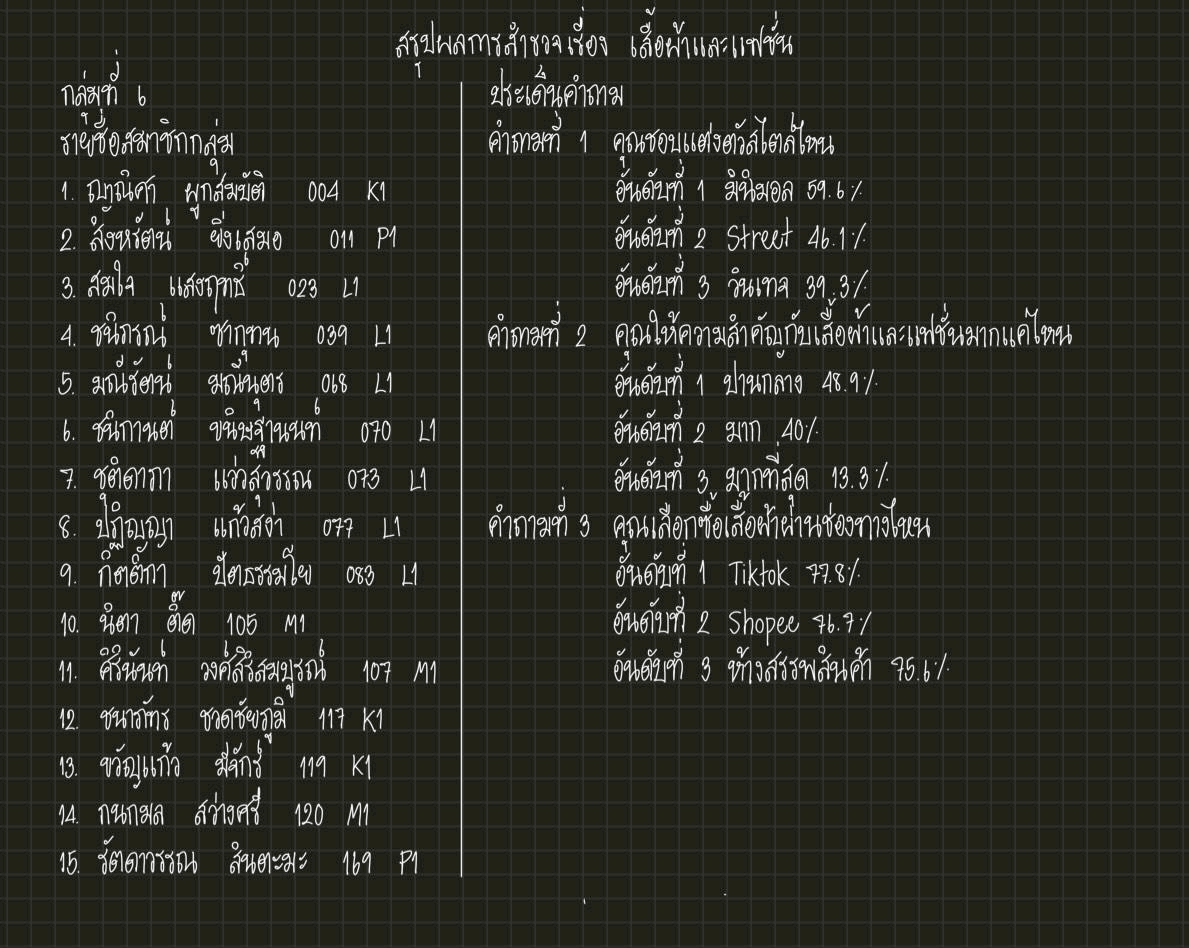 สรุปผลการสำรวจเรื่อง เสื้อผ้าและแฟชั่น
กลุ่มที่ 6
รายชื่อสมาชิกกลุ่ม
1. ญาณิศา ผูกสมบัติ 004 K1
2. สังหรัตน์ ยิ่งเสมอ 011 P1
3. สมใจ แสงฤทธิ์ 023 L1
4. ชนิภรณ์ ซากุทน 039 L1
5. มณีรัตน์ มณีบุตร 068 L1
6. ชนิกานต์ ขนิษฐานนท์ 070 L1
7. ชุติดาภา แววสุวรรณ 073 L1
8. ปฏิญญา แก้วสง่า 077 L1
9. กิตติ์ก้า ปิตธรรมโย 083 L1
10. นิตา ติ๊ด 105 M1
11. ศิรินันท์ วงศ์สิริสมบูรณ์ 107 M1
12. ชนาภัทร ชวดชัยภูมิ 117 K1
13. ขวัญแก้ว มีจักร์ 119 K1
14. กนกมล สว่างศรี 120 M1
15. รัตดาวรรณ สินตะมะ 169 P1
ประเด็นคำถาม
คำถามที่ 1 คุณชอบแต่งตัวสไตล์ไหน
อันดับที่ 1 มินิมอล 59.6%
อันดับที่ 2 Street 46.1%
อันดับที่ 3 วินเทจ 39.3%
คำถามที่ 2 คุณให้ความสำคัญกับเสื้อผ้าและแฟชั่นมากแค่ไหน
อันดับที่ 1 ปานกลาง 48.9%
อันดับที่ 2 มาก 40%
อันดับที่ 3 มากที่สุด 13.3%
คำถามที่ 3 คุณเลือกซื้อเสื้อผ้าผ่านช่องทางไหน
อันดับที่ 1 Tiktok 77.8%
อันดับที่ 2 Shopee 76.7%
อันดับที่ 3 ห้างสรรพสินค้า 75.6%